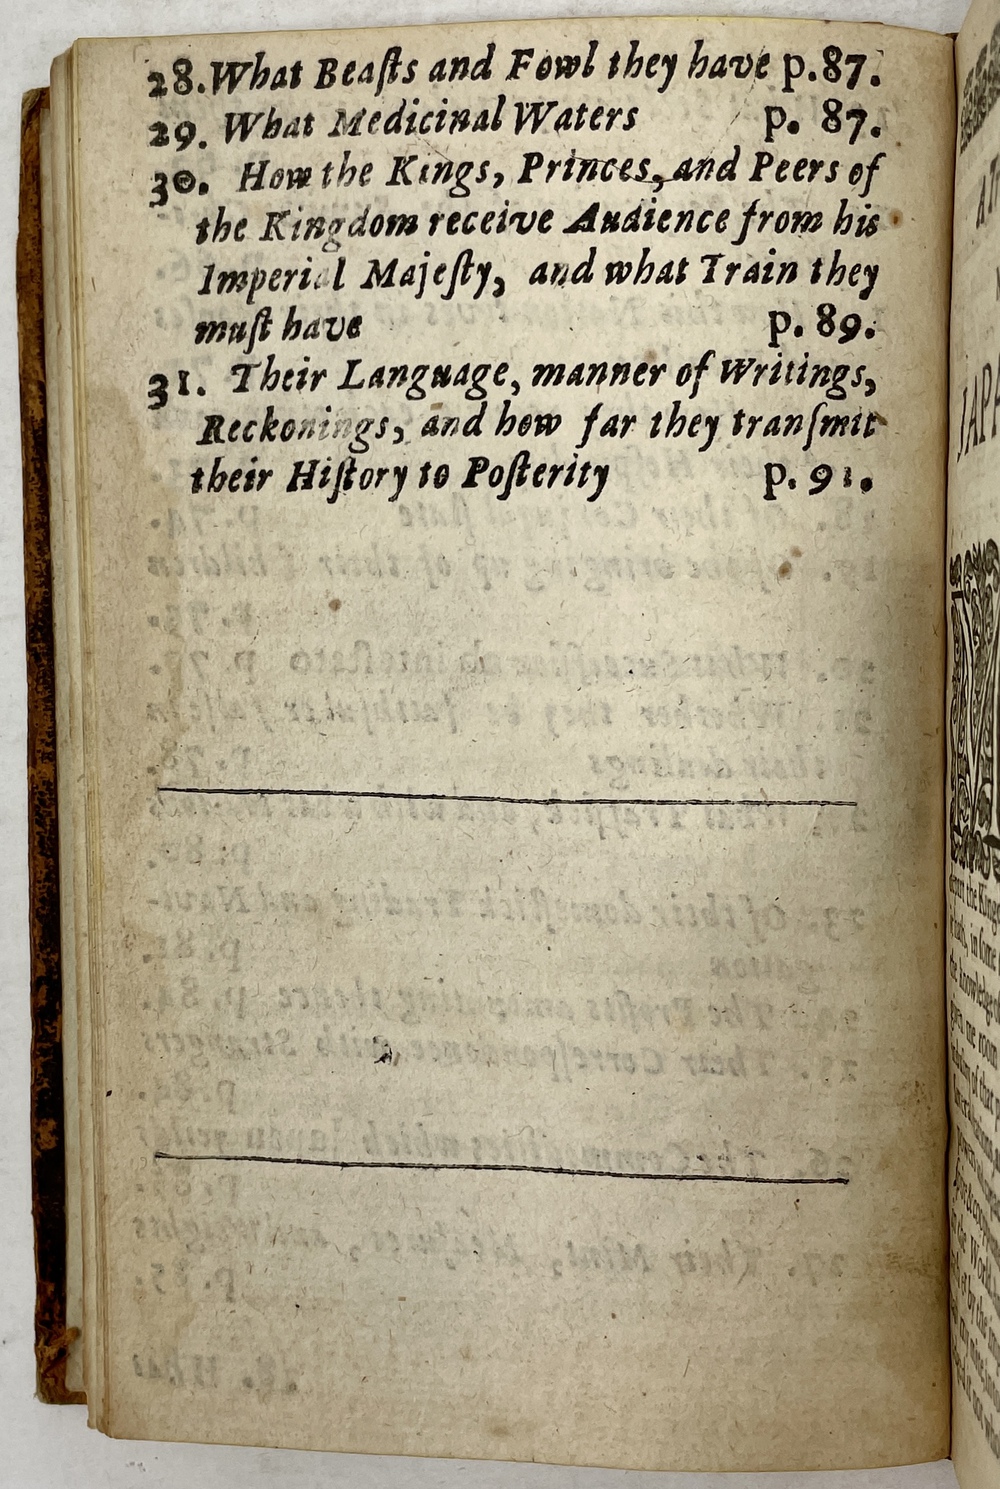 28. What Beaſts and Fowl they have p. 87.
29. What Medicinal Waters p. 87.
30. How the Kings, Princes, and Peers of
the Kingdom receive Audience from his
Imperial Majeſty, and what Train they
muſt have p. 89.
31. Their Language, manner of Writings,
Reckonings, and how far they tranſmit
their Hiſtory to Poſterity p. 91.